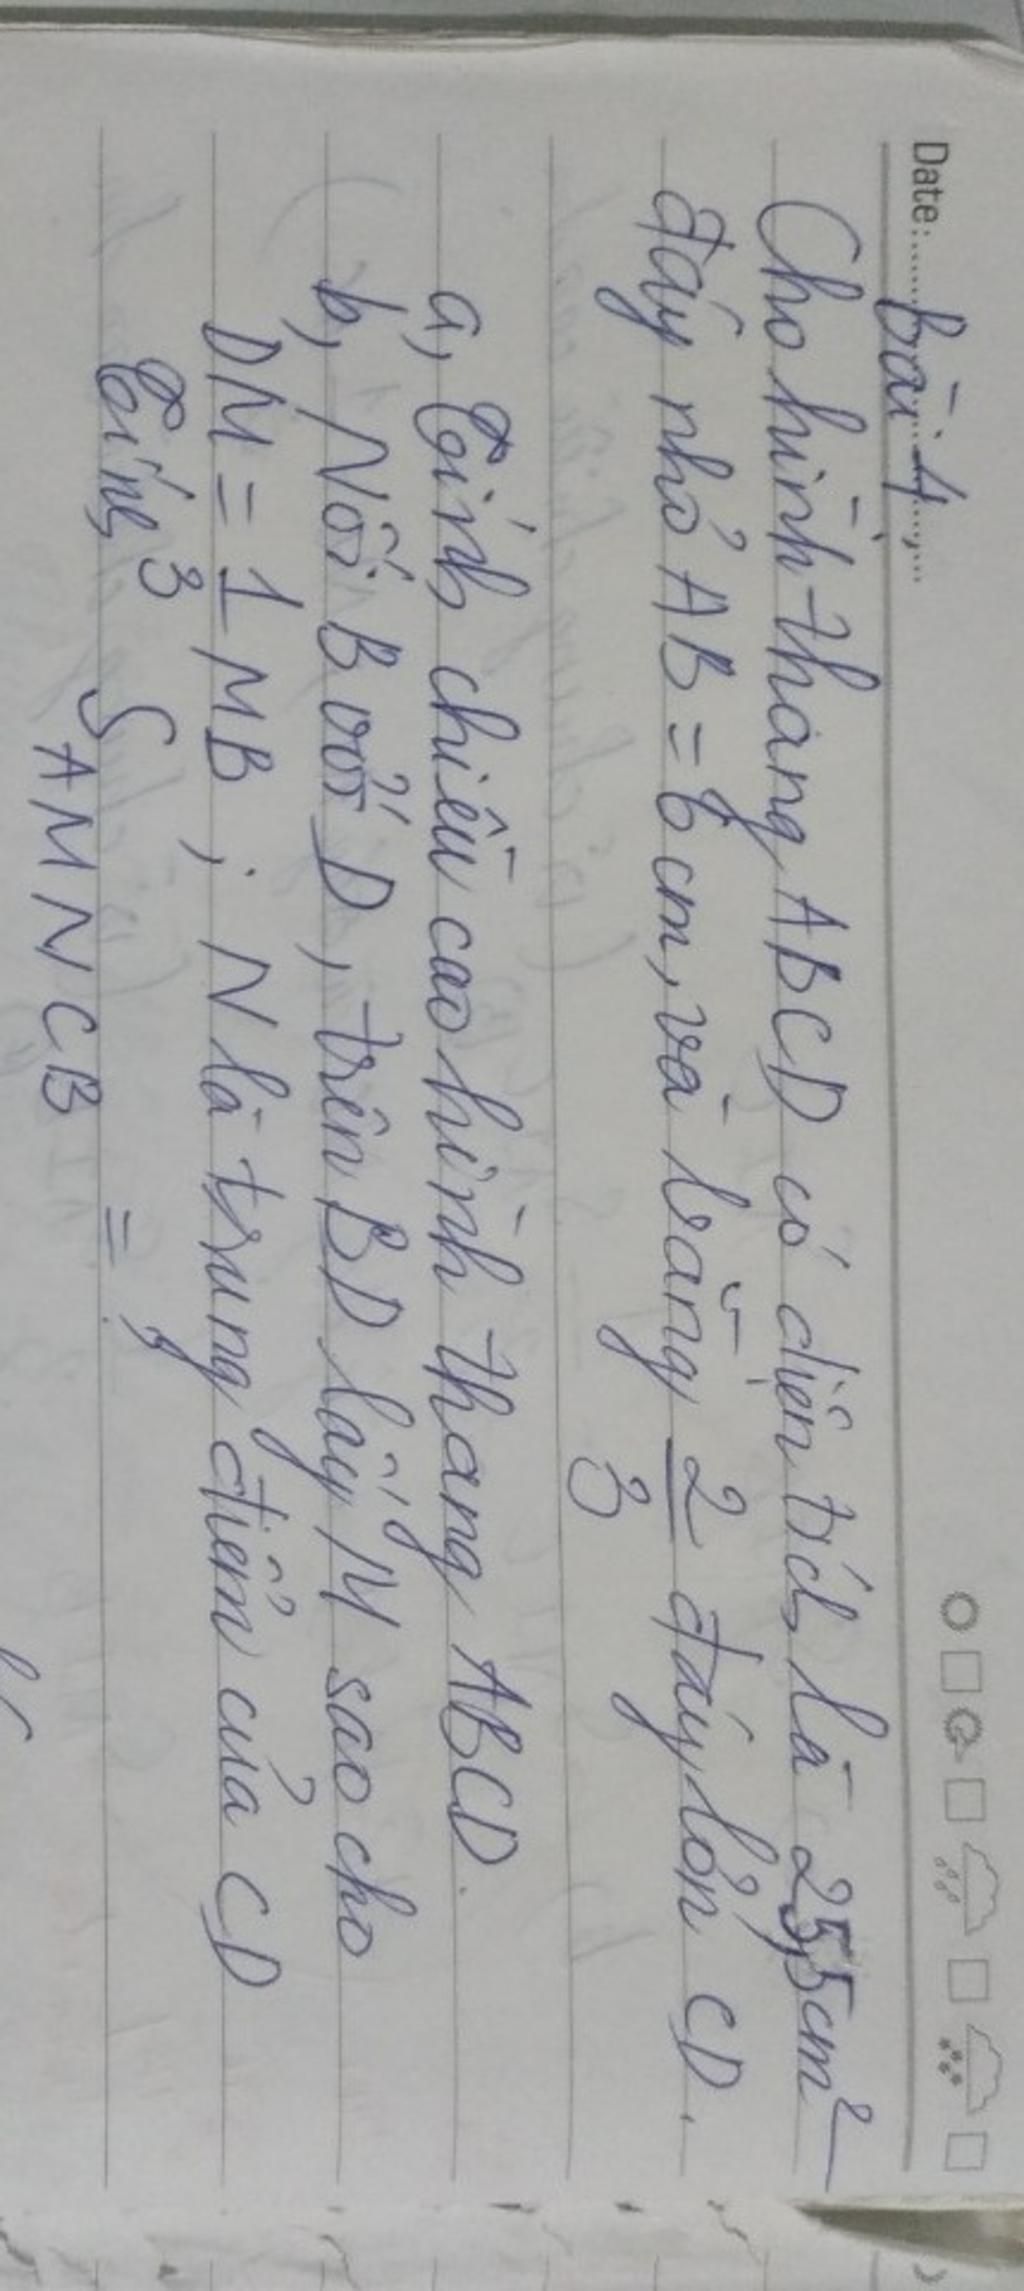 Date:
Bài 4,
Cho hình thang ABCD có diện tích là 25,5cm²
đáy nhỏ AB = 6 cm, và bằng 2/3 đáy lớn CD.
a, Tính chiều cao hình thang ABCD.
b, Nối B với D, trên BD lấy M sao cho
DM = 1/3 MB ; N là trung điểm của CD
Tính S AMNCB = ?